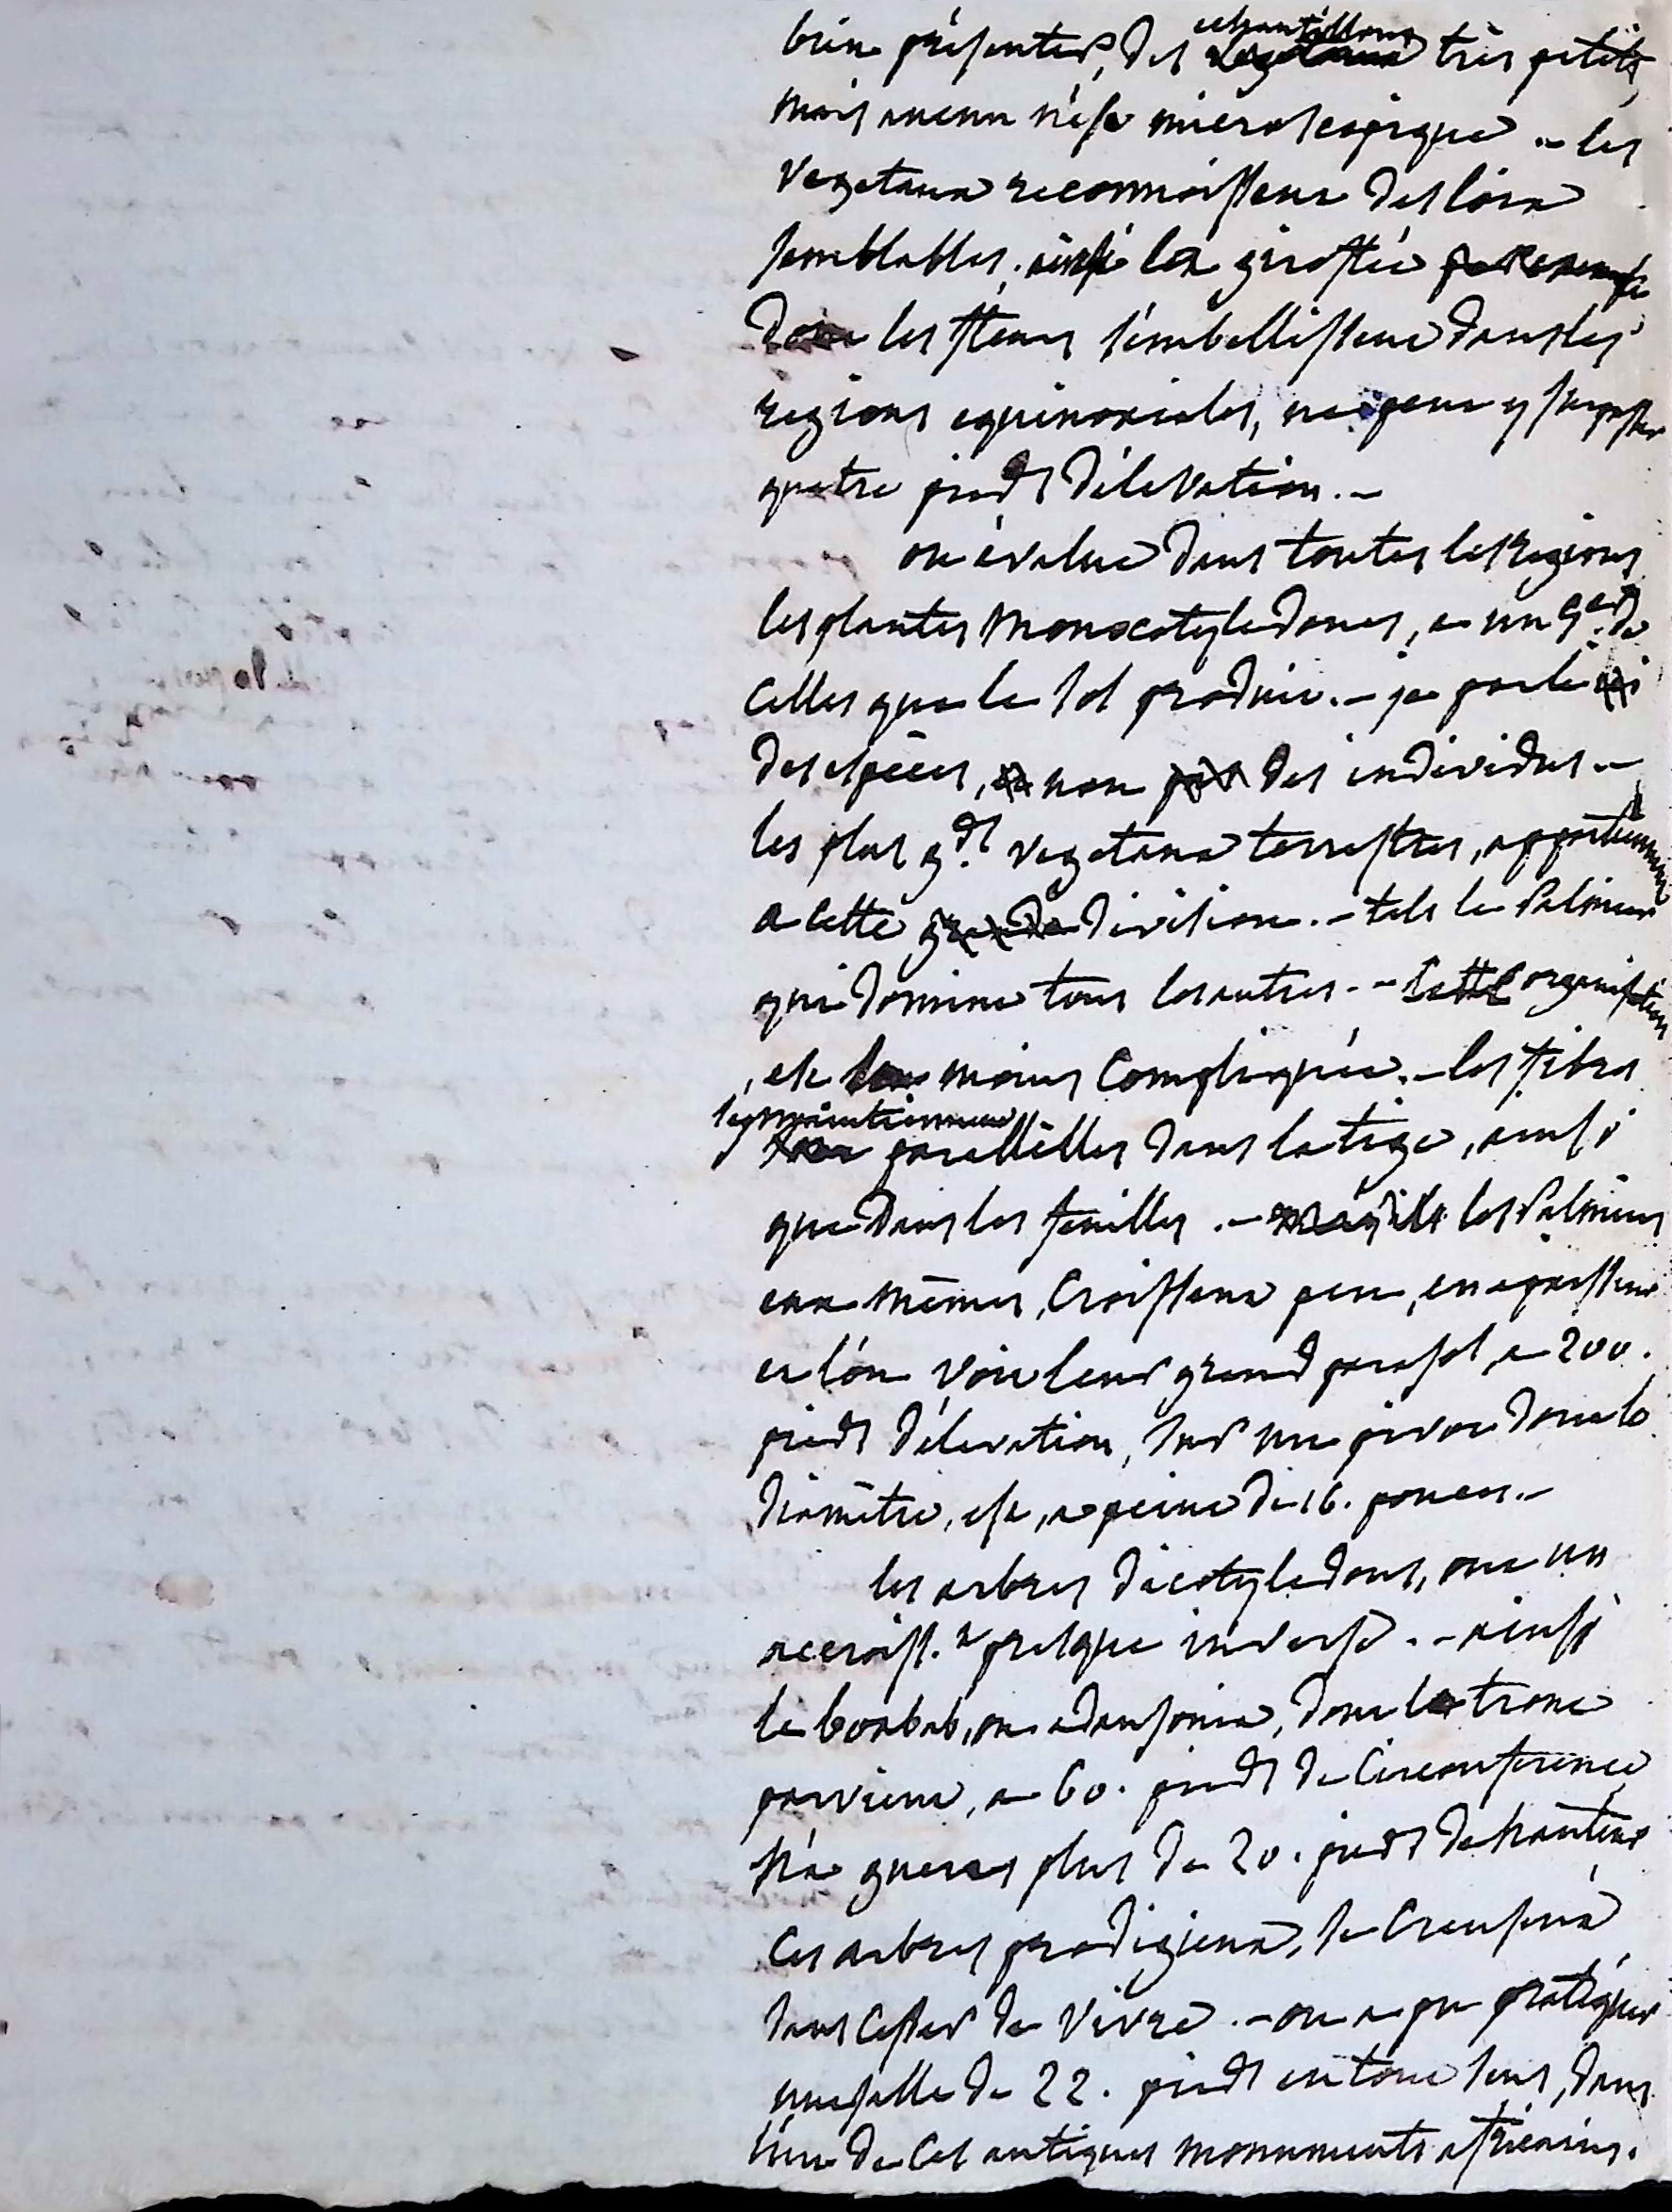 echantillons
bien présenter, des vegetaux très petits,
mais aucun n'est microscopique. - les
vegetaux reconnoissent des loix
semblables. ainsi la giroflée par exemple
dont les fleurs s'embellissent dans les
regions equinoxiales, ne peut y surpasser
quatre pieds d'élevation. -
on évalue dans toutes les regions
les plantes monocotyledones, a un 6eme de
celles que le sol produit. - je parle ici
des espèces, et non pas des individus. -
les plus gds vegetaux terrestres, appartiennent
a cette grande division. - tels le Palmier
qui domine tous les autres. - cette organisation
, est moins compliquée. - les fibres
s'y maintiennent
sont parallèlles dans la tige, ainsi
que dans les feuilles. - les Palmiers
eux mêmes, croissent peu, en epaisseur
et l'on voit leur grand parasol, a 200.
pieds d'élevation, sur un pivot dont le
diamètre, est, a peine de 16. pouces. -
les arbres dicotyledons, ont un
accroisst. presque inverse. - ainsi
le baobab, ou adansonia, dont le tronc
parvient, a 60. pieds de circonference
n'a gueres plus de 20. pieds de hauteur
Ces arbres prodigieux, se creusent
sans cesser de vivre. - on a pu pratiquer
une salle de 22. pieds en tout sens, dans
l'un de ces antiques monuments africains.